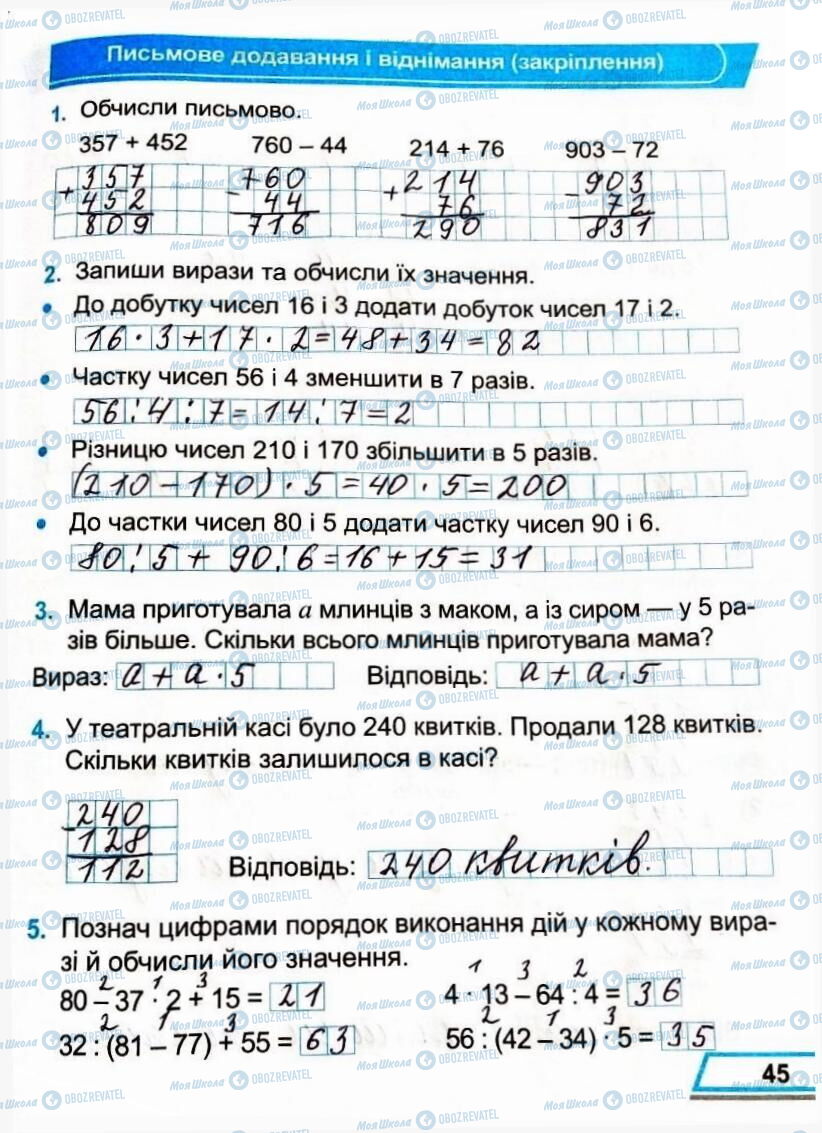 Письмове додавання і віднімання (закріплення)
1. Обчисли письмово.
357 + 452 760 – 44 214 + 76 903 – 72
+357 -760 +214 -903
452 44 76 72
809 716 290 831
2. Запиши вирази та обчисли їх значення.
• До добутку чисел 16 і 3 додати добуток чисел 17 і 2.
16 · 3 + 17 · 2 = 48 + 34 = 82
• Частку чисел 56 і 4 зменшити в 7 разів.
56 : 4 : 7 = 14 : 7 = 2
• Різницю чисел 210 і 170 збільшити в 5 разів.
(210 – 170) · 5 = 40 · 5 = 200
• До частки чисел 80 і 5 додати частку чисел 90 і 6.
80 : 5 + 90 : 6 = 16 + 15 = 31
3. Мама приготувала a млинців з маком, а із сиром — у 5 ра-
зів більше. Скільки всього млинців приготувала мама?
Вираз: a + a · 5 Відповідь: a + a · 5
4. У театральній касі було 240 квитків. Продали 128 квитків.
Скільки квитків залишилося в касі?
-240
128
112
Відповідь: 240 квитків.
5. Познач цифрами порядок виконання дій у кожному вира-
зі й обчисли його значення.
2 1 3 1 3 2
80 – 37 · 2 + 15 = 21 4 · 13 – 64 : 4 = 36
2 1 3 2 1 3
32 : (81 – 77) + 55 = 63 56 : (42 – 34) · 5 = 35
45